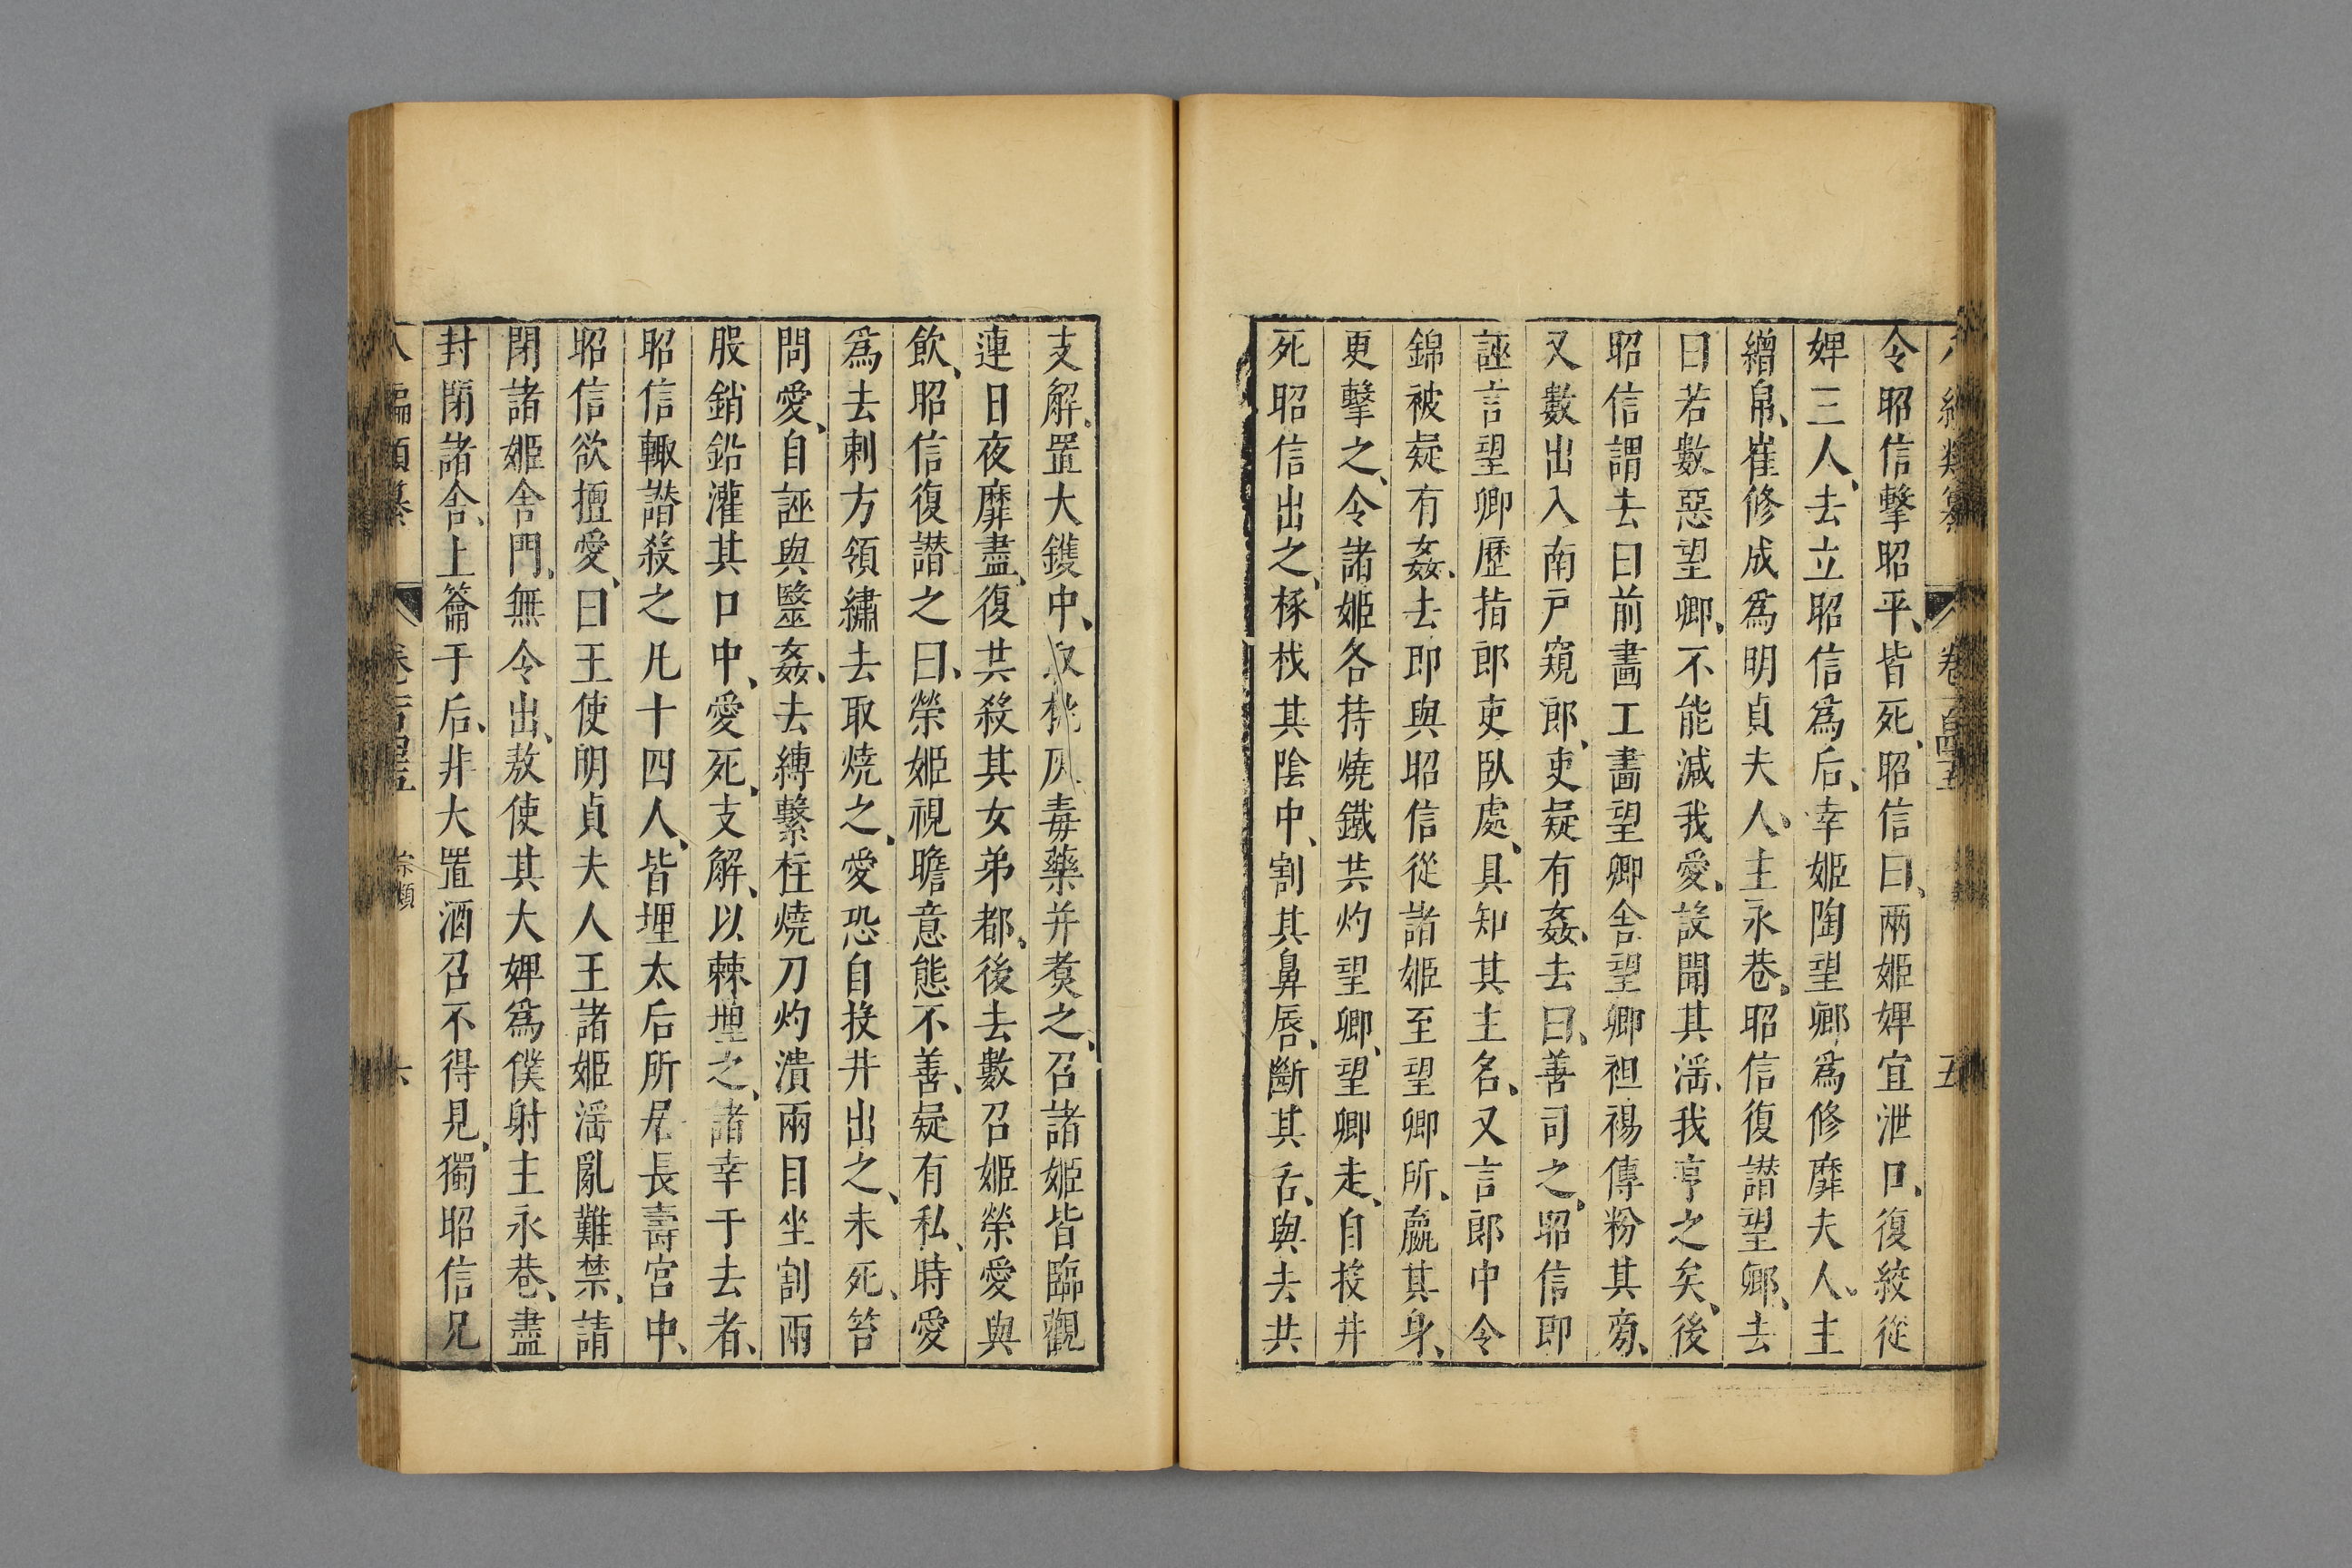 令昭信擊昭平、皆死、昭信曰、兩姬婢宜泄口、復絞從
婢三人、去立昭信爲后、幸姬陶望卿爲修靡夫人、主
繒帛、崔修成爲明貞夫人、主永巷、昭信復譖望卿、去
曰若數惡望卿、不能減我愛、設聞其淫、我亨之矣、後
昭信謂去曰前畫工畫望卿舍望卿袒裼傅粉其旁、
又數出入南戸窺郎、吏疑有姦、去曰、善司之、昭信即
誣言望卿歷指郎吏臥處、具知其主名、又言郎中令
錦被疑有姦、去即與昭信從諸姬至望卿所、臝其身、
更擊之、令諸姬各持燒鐵共灼望卿、望卿走、自投井
死昭信出之、椓杙其陰中、割其鼻唇、斷其舌、與去共
支解、置大鑊中、取桃灰毒藥并煑之、召諸姬皆臨觀
連日夜靡盡、復共殺其女弟都、後去數召姬榮愛與
飲、昭信復譖之曰、榮姬視瞻意態不善、疑有私、時愛
爲去刺方領繡去取燒之、愛恐自投井出之、未死、笞
問愛、自誣與醫姦、去縛繫柱燒刀灼潰兩目坐割兩
股銷鉛灌其口中、愛死、支解、以棘埋之、諸幸于去者、
昭信輙譖殺之凡十四人、皆埋太后所居長壽宮中、
昭信欲擅愛、曰王使明貞夫人主諸姬淫亂難禁、請
閉諸姬舍門、無令出、敖使其大婢爲僕射主永巷、盡
封閉諸舍、上籥于后、非大置酒召不得見、獨昭信兄